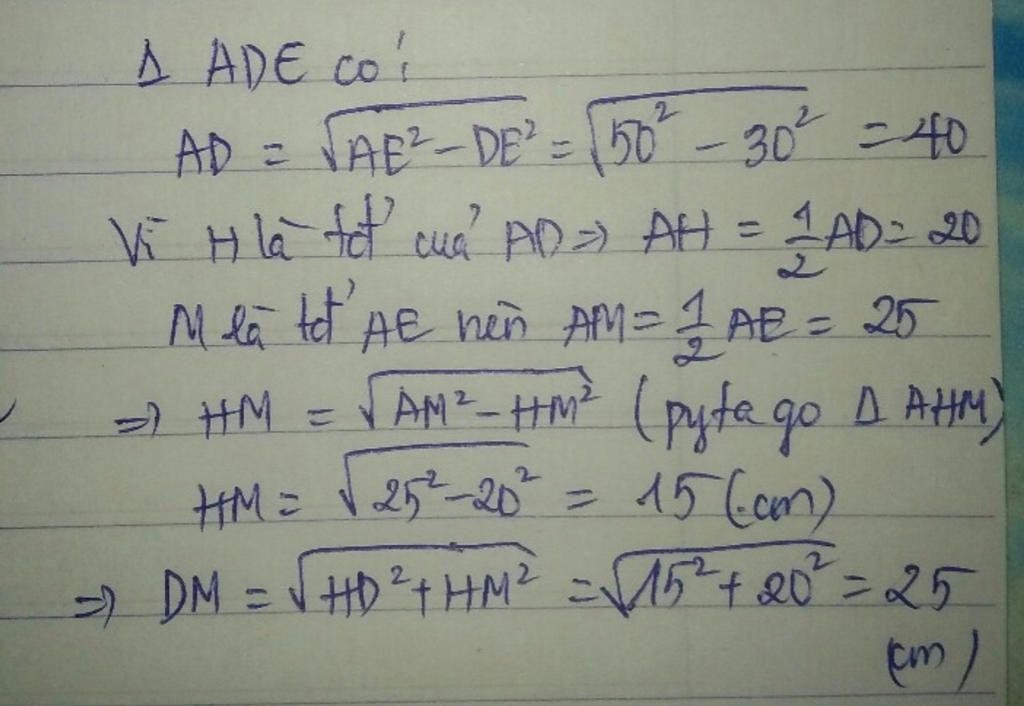 Δ ADE có:
AD = √(AE² - DE²) = √(50² - 30²) = 40
Vì H là tđ' của AD => AH = 1/2 AD = 20
M là tđ' AE nên AM = 1/2 AE = 25
=> HM = √(AM² - HM²) (pytago Δ AHM)
HM = √(25² - 20²) = 15 (cm)
=> DM = √(HD² + HM²) = √(15² + 20²) = 25
(cm)